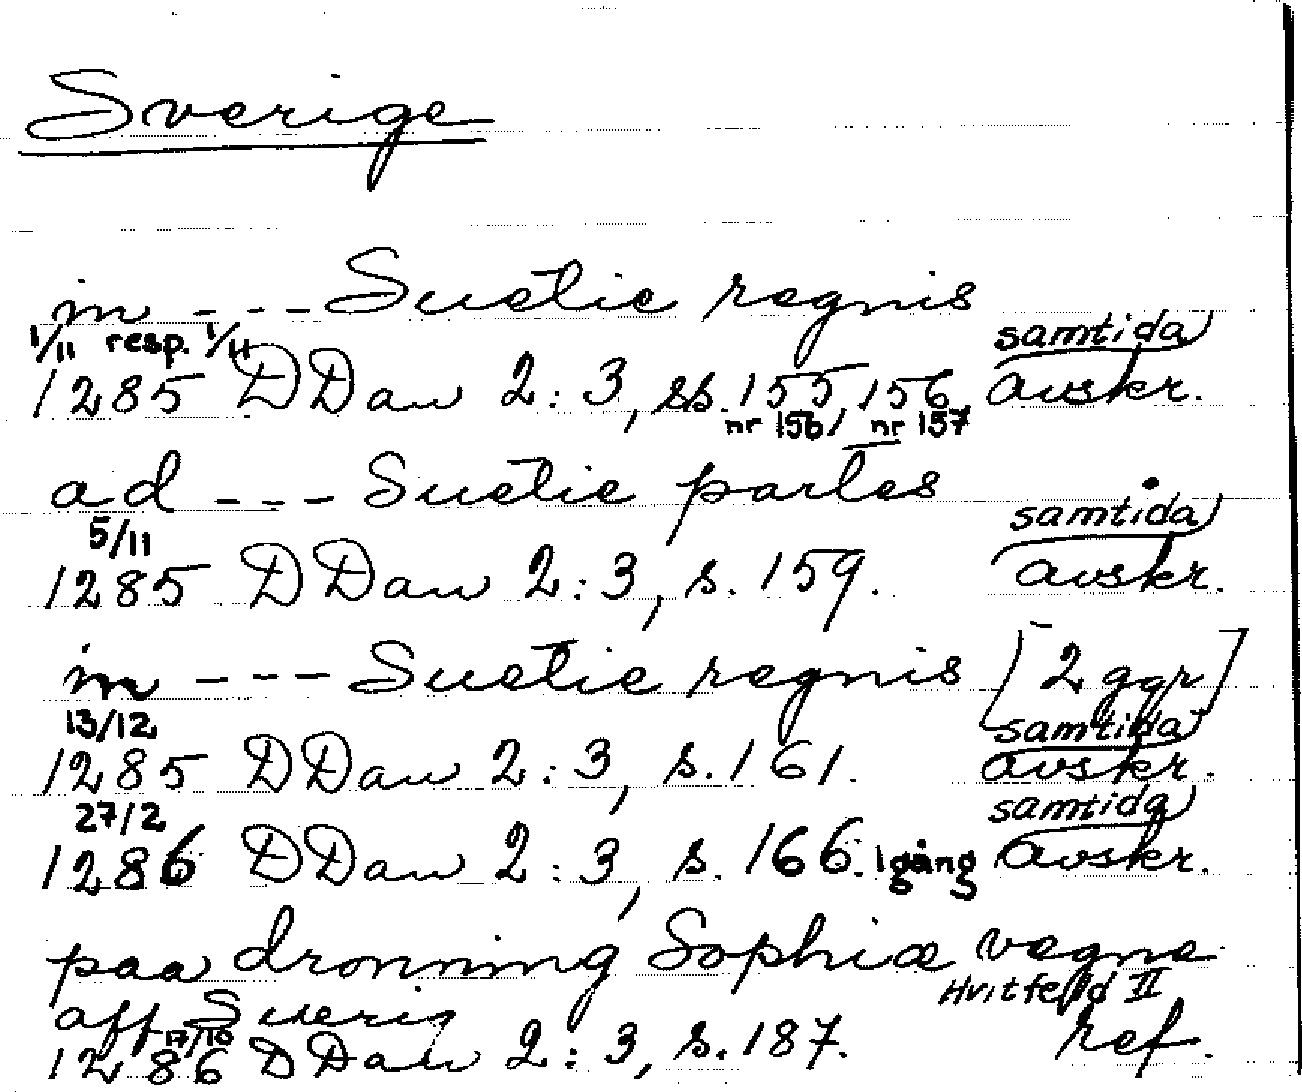 Sverige
in - - - Suetie regnis
1/11 resp. 1/11 samtida
1285 DDan 2:3, ss. 155, 156, avskr.
nr 156, nr 157
ad - - - Suetie partes
5/11 samtida
1285 DDan 2:3, s. 159. avskr.
in - - - Suetie regnis [2 ggr]
13/12 samtida
1285 DDan 2:3, s. 161. avskr.
27/2 samtida
1286 DDan 2:3, s. 166. 1 gång avskr.
paa dronning Sophiæ vegne
aff Suerig Hvitfeld II
17/10
1286 DDan 2:3, s. 187. ref.